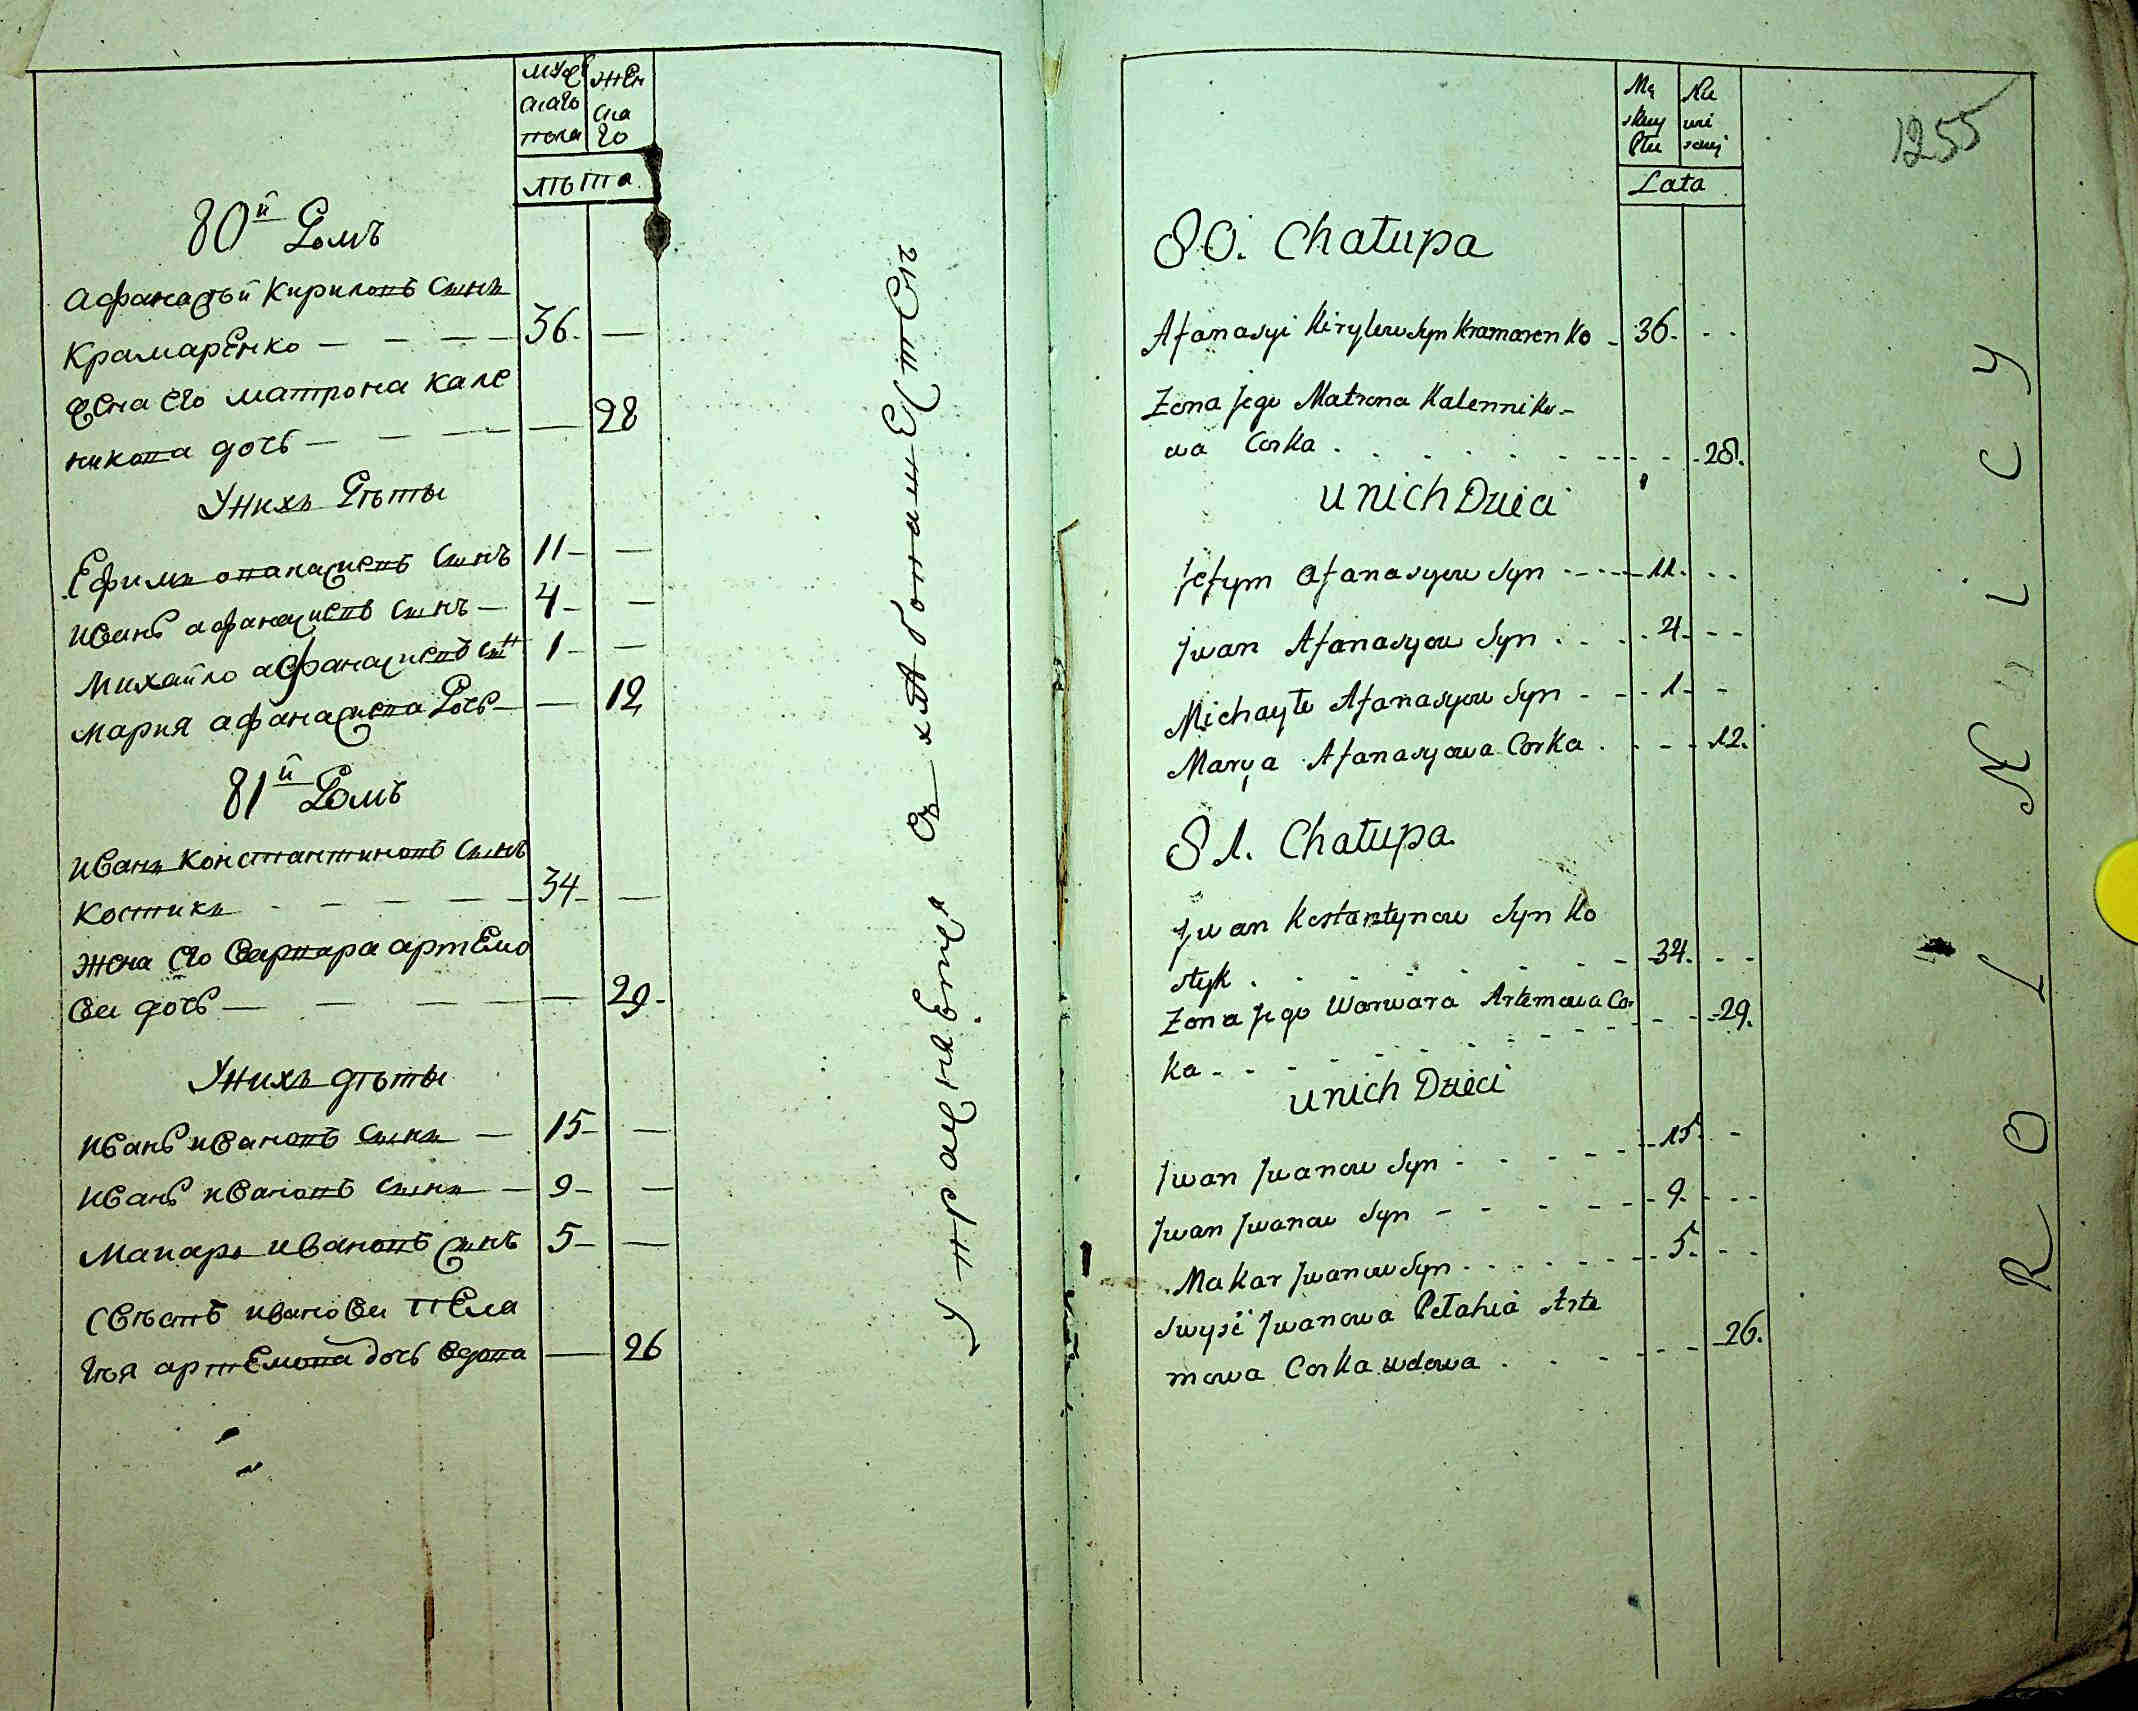 мужескаго пола
женскаго
лѣта
80й Домъ
Афанасѣй Кириловъ Сынъ
Крамаренко — — — — 36. —
Жена его матрона кале
никова дочь — — — — — 28
Унихъ Дѣты
Ефимъ опанасиевъ Сынъ 11 — —
Иванъ афанасиевъ Сынъ — 4 — —
Михайло афанасиевъ Сынъ 1 — —
Мария афанасиева Дочь — — 12
81й Домъ
Иванъ Константиновъ Сынъ
Костикъ — — — — — 34 — —
Жена его Варвара артемо
ва дочь — — — — — 29 -
Унихъ дѣты
Иванъ Ивановъ Сынъ — 15 — —
Иванъ Ивановъ Сынъ — 9 — —
Макаръ Ивановъ Сынъ 5 — —
Свѣсть иванова Пела
гѣя артемова дочь вдова — 26
Упражнение в хлѣбопашествѣ
Męskiey Płci
Niewiesciej
Lata
1255
80. Chałupa
Afanasyi Kirylow Syn Kramarenko - 36. - -
Zona Jego Matrona Kalenniko-
wa Corka . . . . . . - - - - 28.
U nich Dzieci
Jefym Afanasyow Syn - - - - 11. - -
Jwan Afanasyow Syn . . . . 4. - -
Michayło Afanasyow Syn - - - 1. -
Marya Afanasyowa Corka . . - - 12.
81. Chałupa
Jwan Kostantynow Syn Ko
styk . . . . . . - - 34. - -
Zona Jego Warwara Artemowa Cor
ka - - - - - - - - - - 29.
U nich Dzieci
Jwan Jwanow Syn - - - - - 15. -
Jwan Jwanow Syn - - - - - 9. - -
Makar Jwanow Syn - - - - - - 5. - -
Swyść Jwanowa Pełahia Arte
mowa Corka wdowa . . - - - - 26.
ROLNICY